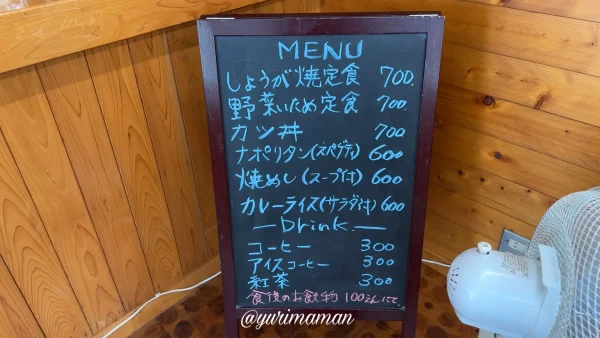 MENU
しょうが焼定食 700.
野菜いため定食 700.
カツ丼 700
ナポリタン(スペゲティ) 600
焼めし(スープ付) 600
カレーライス(サラダ付) 600
—Drink—
コーヒー 300
アイスコーヒー 300
紅茶 300
食後のお飲物 100えんにて
@yurimaman